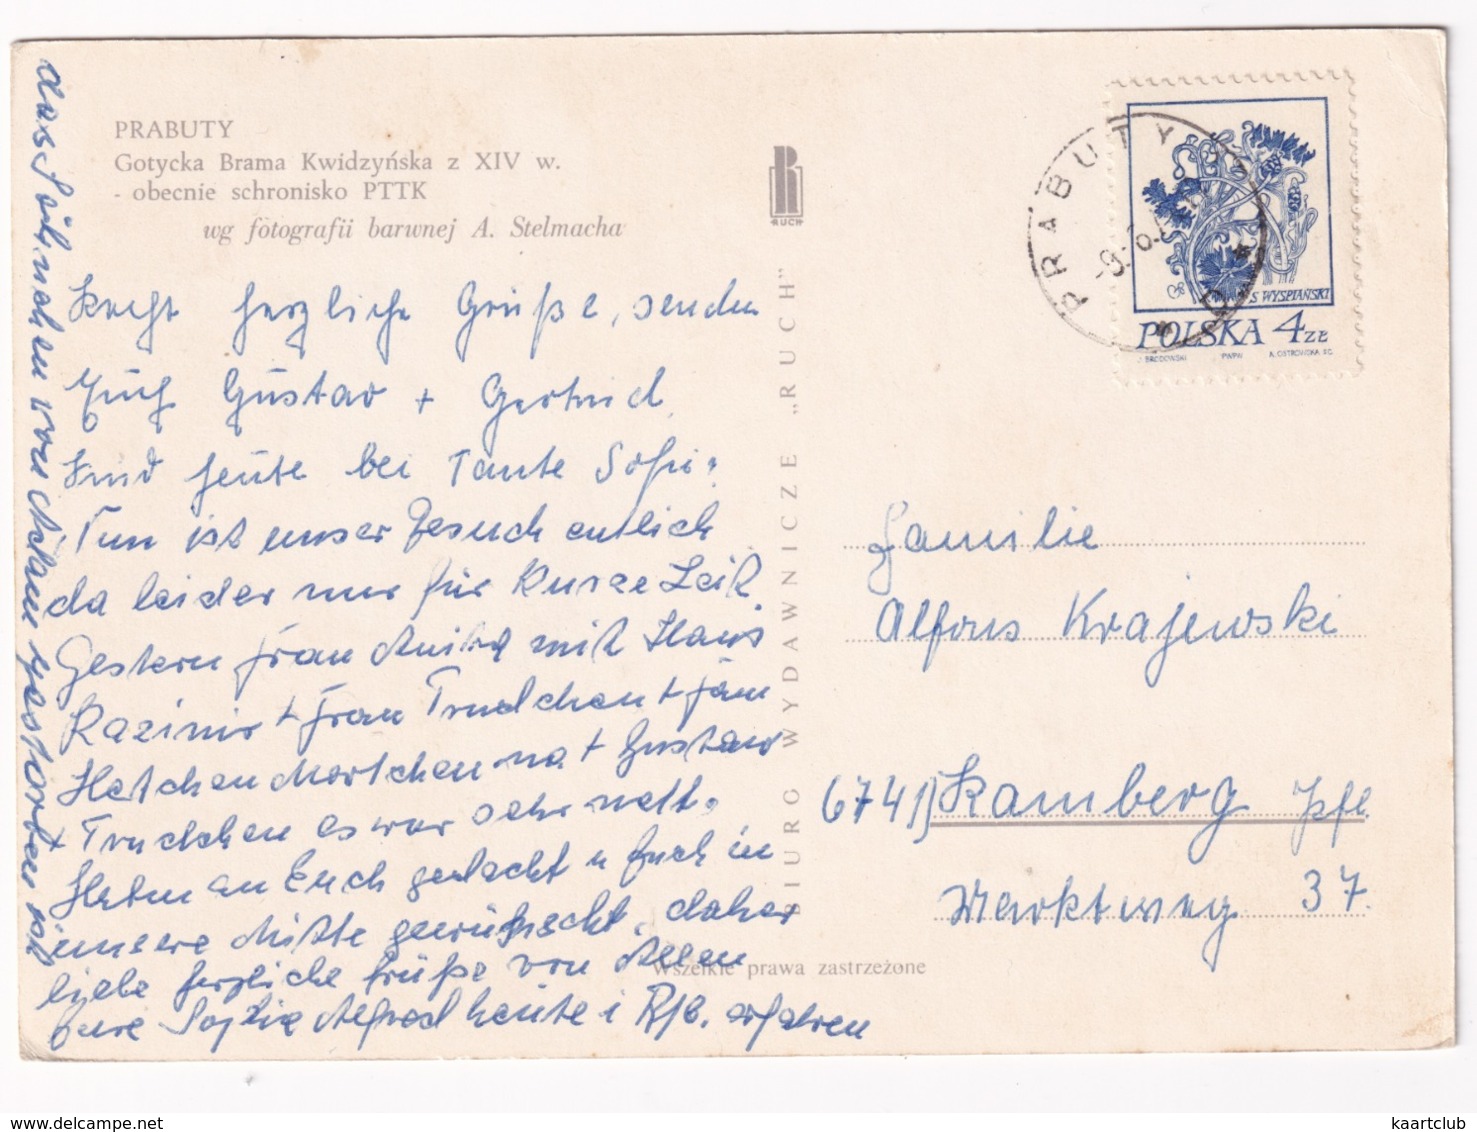 PRABUTY
Gotycka Brama Kwidzyńska z XIV w.
- obecnie schronisko PTTK
wg fotografii barwnej A. Stelmacha
RUCH
BIURO WYDAWNICZE „RUCH"
PRABUTY
S WYSPIAŃSKI
POLSKA 4 ZŁ
BRODOWSKI PWPW A. OSTROWSKA SC.
Recht herzliche Grüße, senden
Euch Gustav + Gertrud
Sind heute bei Tante Sofie.
Nun ist unser Besuch entlich
da leider nur für kurze Zeit
Gestern Frau Anita mit Hans
Kazimir + Frau Trudchen +
Hetchen + Gustav
+ Trudchen es war sehr nett.
Haben an Euch gedacht u Euch in
unsere Mitte gewünscht, daher
liebe herzliche Grüße von Allen
Eure Sophie Alfred heute i Rfb. erfahren
das
gestorben ist
Familie
Alfons Krajewski
6741) Ramberg Pfl
Marktweg 37.
Wszelkie prawa zastrzeżone
kaartclub